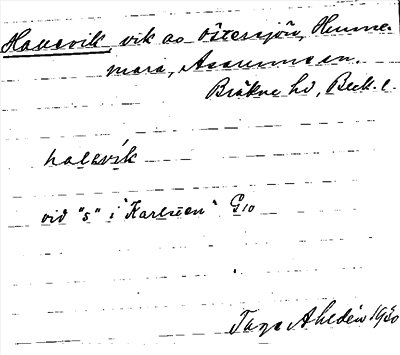 Hallsvik vik av Östersjön, Hemme-
mara, Asarums sn.
Bräkne hd, Blek. l.
halsvík
vid "s" i "Karlsten" G10
Tage Ahldén 1930